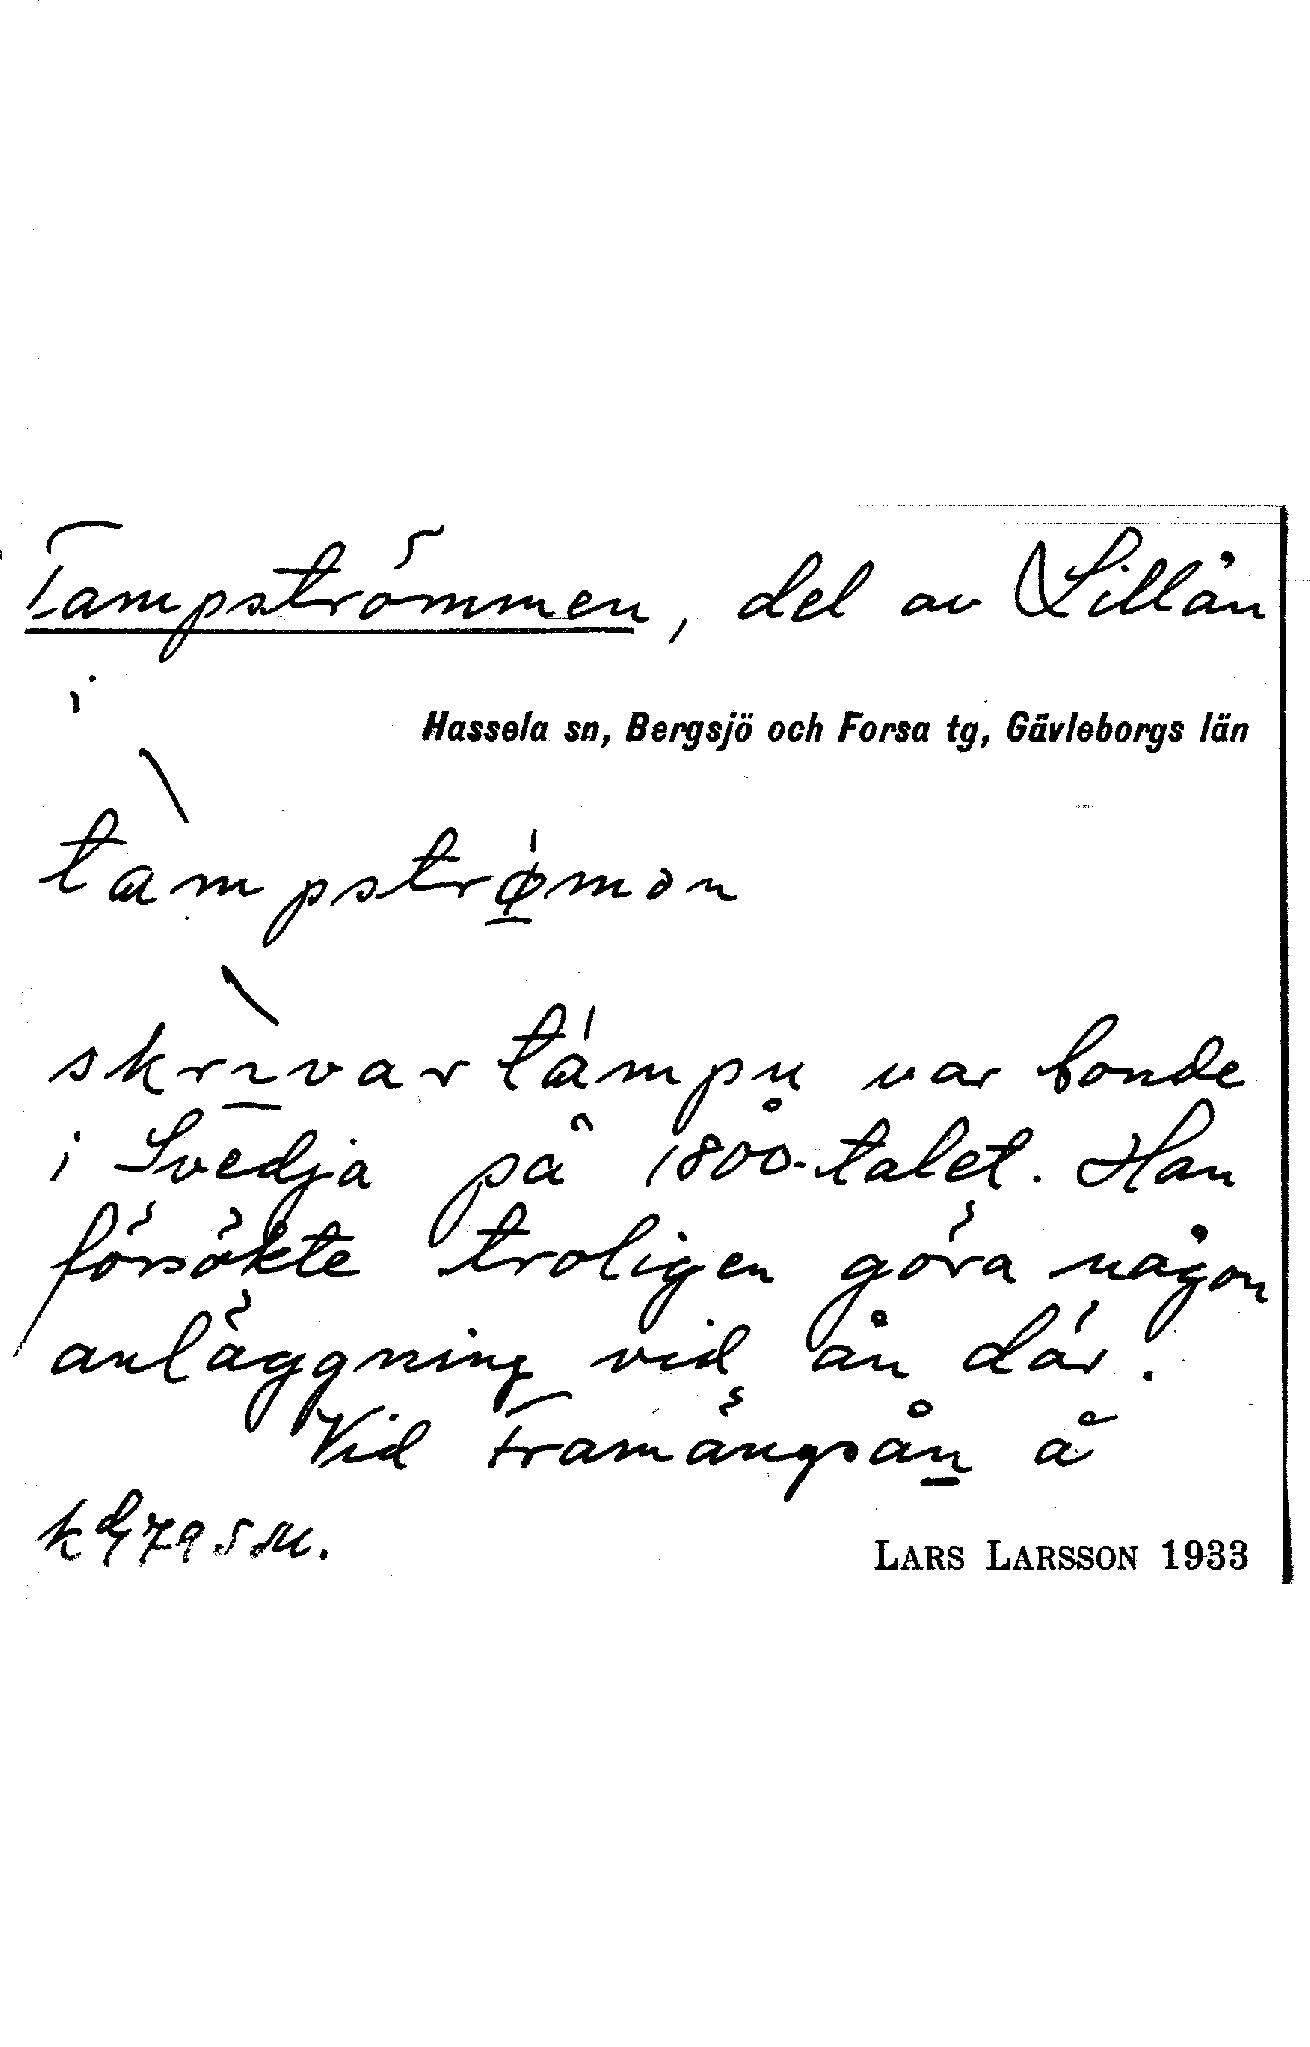 Tampströmmen, del av Lillån
i
Hassela sn, Bergsjö och Forsa tg, Gävleborgs län
tàmpstrǿ̱mən
skrī̱̀vartámpų var bonde
i Svedja på 1800-talet. Han
försökte troligen göra någon
anläggning vid ån där.
Vid Framängsån å
LARS LARSSON 1933